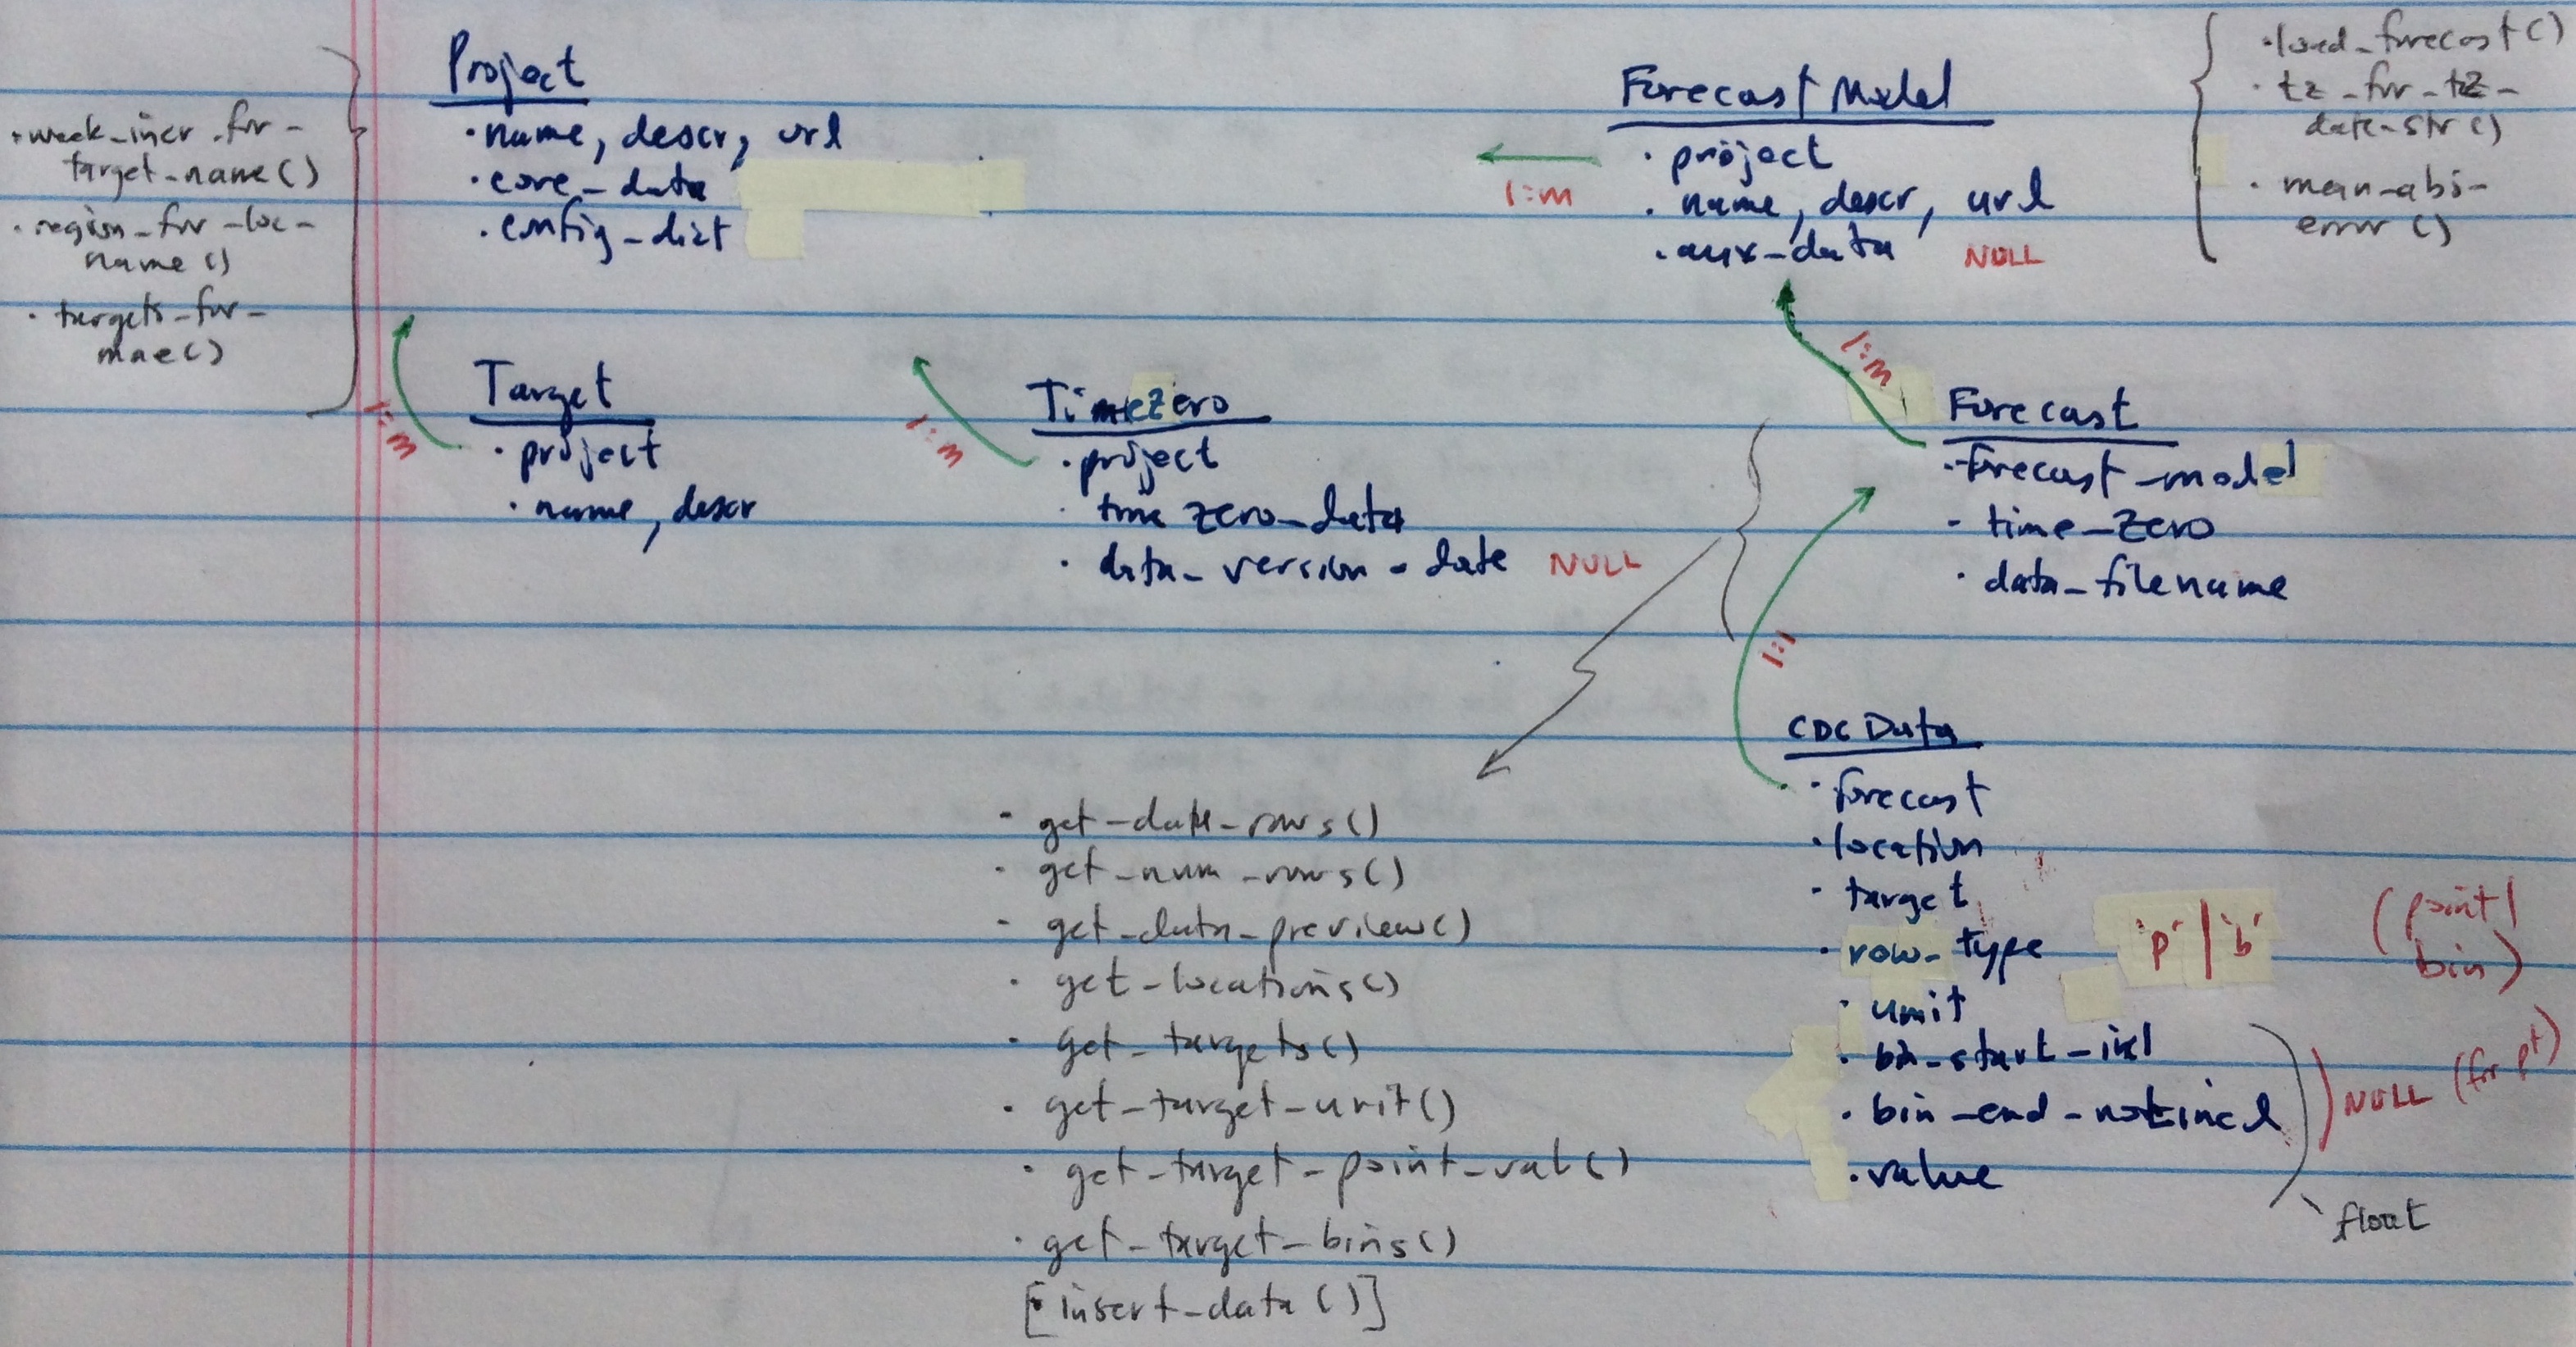 Project
· name, descr, url
· core_data
· config_dict
· week_incr_for_
target_name()
· region_for_loc_
name()
· targets_for_
mae()
Forecast Model
· project
· name, descr, url
· aux_data NULL
1:m
· load_forecast()
· tz_for_tz_
date_str()
· mean_abs_
error()
Target
· project
· name, descr
1:m
TimeZero
· project
· time zero_date
· data_version_date NULL
1:m
Forecast
· forecast_model
- time_zero
· data_filename
1:m
1:1
CDC Data
· forecast
· location
- target
· row_type 'p' | 'b' (point/
bin)
· unit
· bin_start_incl
· bin_end_notincl
· value
NULL (for pt)
float
- get_data_rows()
- get_num_rows()
- get_data_preview()
· get_locations()
· get_targets()
· get_target_unit()
· get_target_point_val()
· get_target_bins()
[· insert_data()]